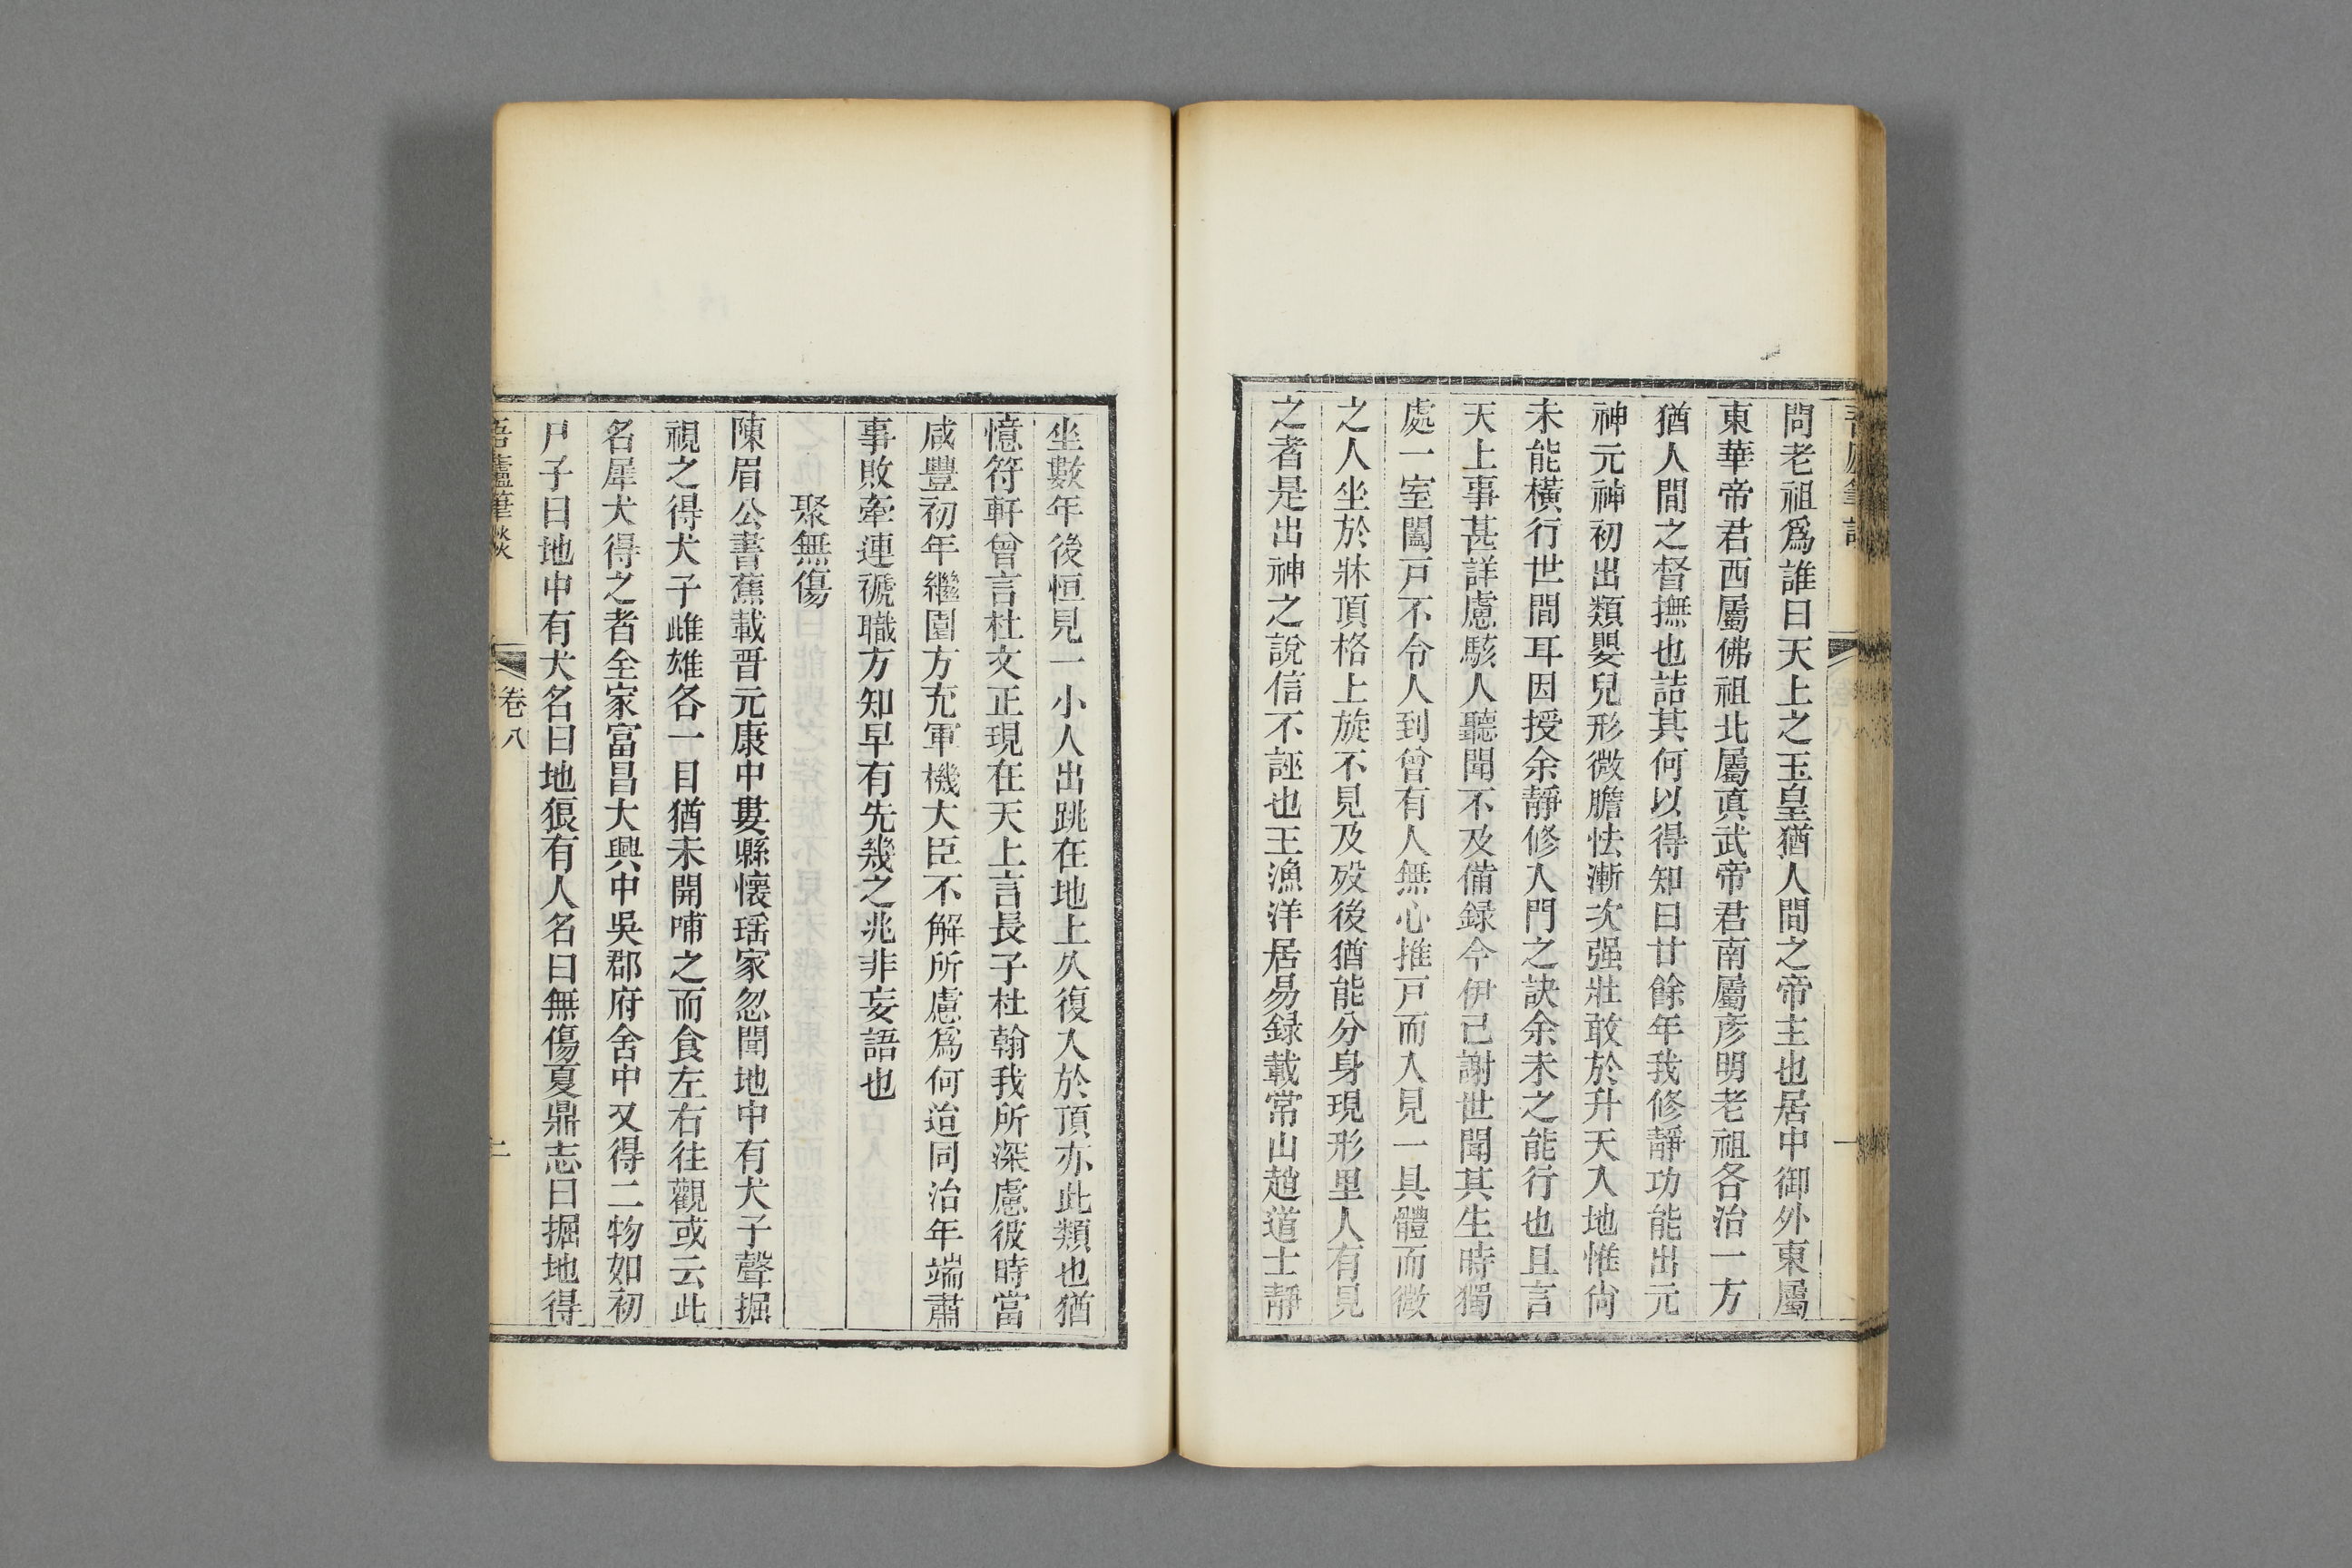 問老祖爲誰曰天上之玉皇猶人間之帝主也居中御外東屬
東華帝君西屬佛祖北屬眞武帝君南屬彥明老祖各治一方
猶人間之督撫也詰其何以得知曰廿餘年我修靜功能出元
神元神初出類嬰兒形微膽怯漸次强壯敢於升天入地惟尙
未能橫行世間耳因授余靜修入門之訣余未之能行也且言
天上事甚詳慮駭人聽聞不及備録今伊已謝世聞其生時獨
處一室闔戸不令人到曾有人無心推戸而入見一具體而微
之人坐於牀頂格上旋不見及歿後猶能分身現形里人有見
之者是出神之說信不誣也王漁洋居易録載常山趙道士靜
坐數年後恒見一小人出跳在地上久復入於頂亦此類也猶
憶符軒曾言杜文正現在天上言長子杜翰我所深慮彼時當
咸豐初年繼園方充軍機大臣不解所慮爲何迨同治年端肅
事敗牽連褫職方知早有先幾之兆非妄語也
聚無傷
陳眉公書蕉載晋元康中婁縣懷瑶家忽聞地中有犬子聲掘
視之得犬子雌雄各一目猶未開哺之而食左右往觀或云此
名犀犬得之者全家富昌大興中吳郡府舍中又得二物如初
尸子曰地中有犬名曰地狼有人名曰無傷夏鼎志曰掘地得
吾廬筆談
卷八
二